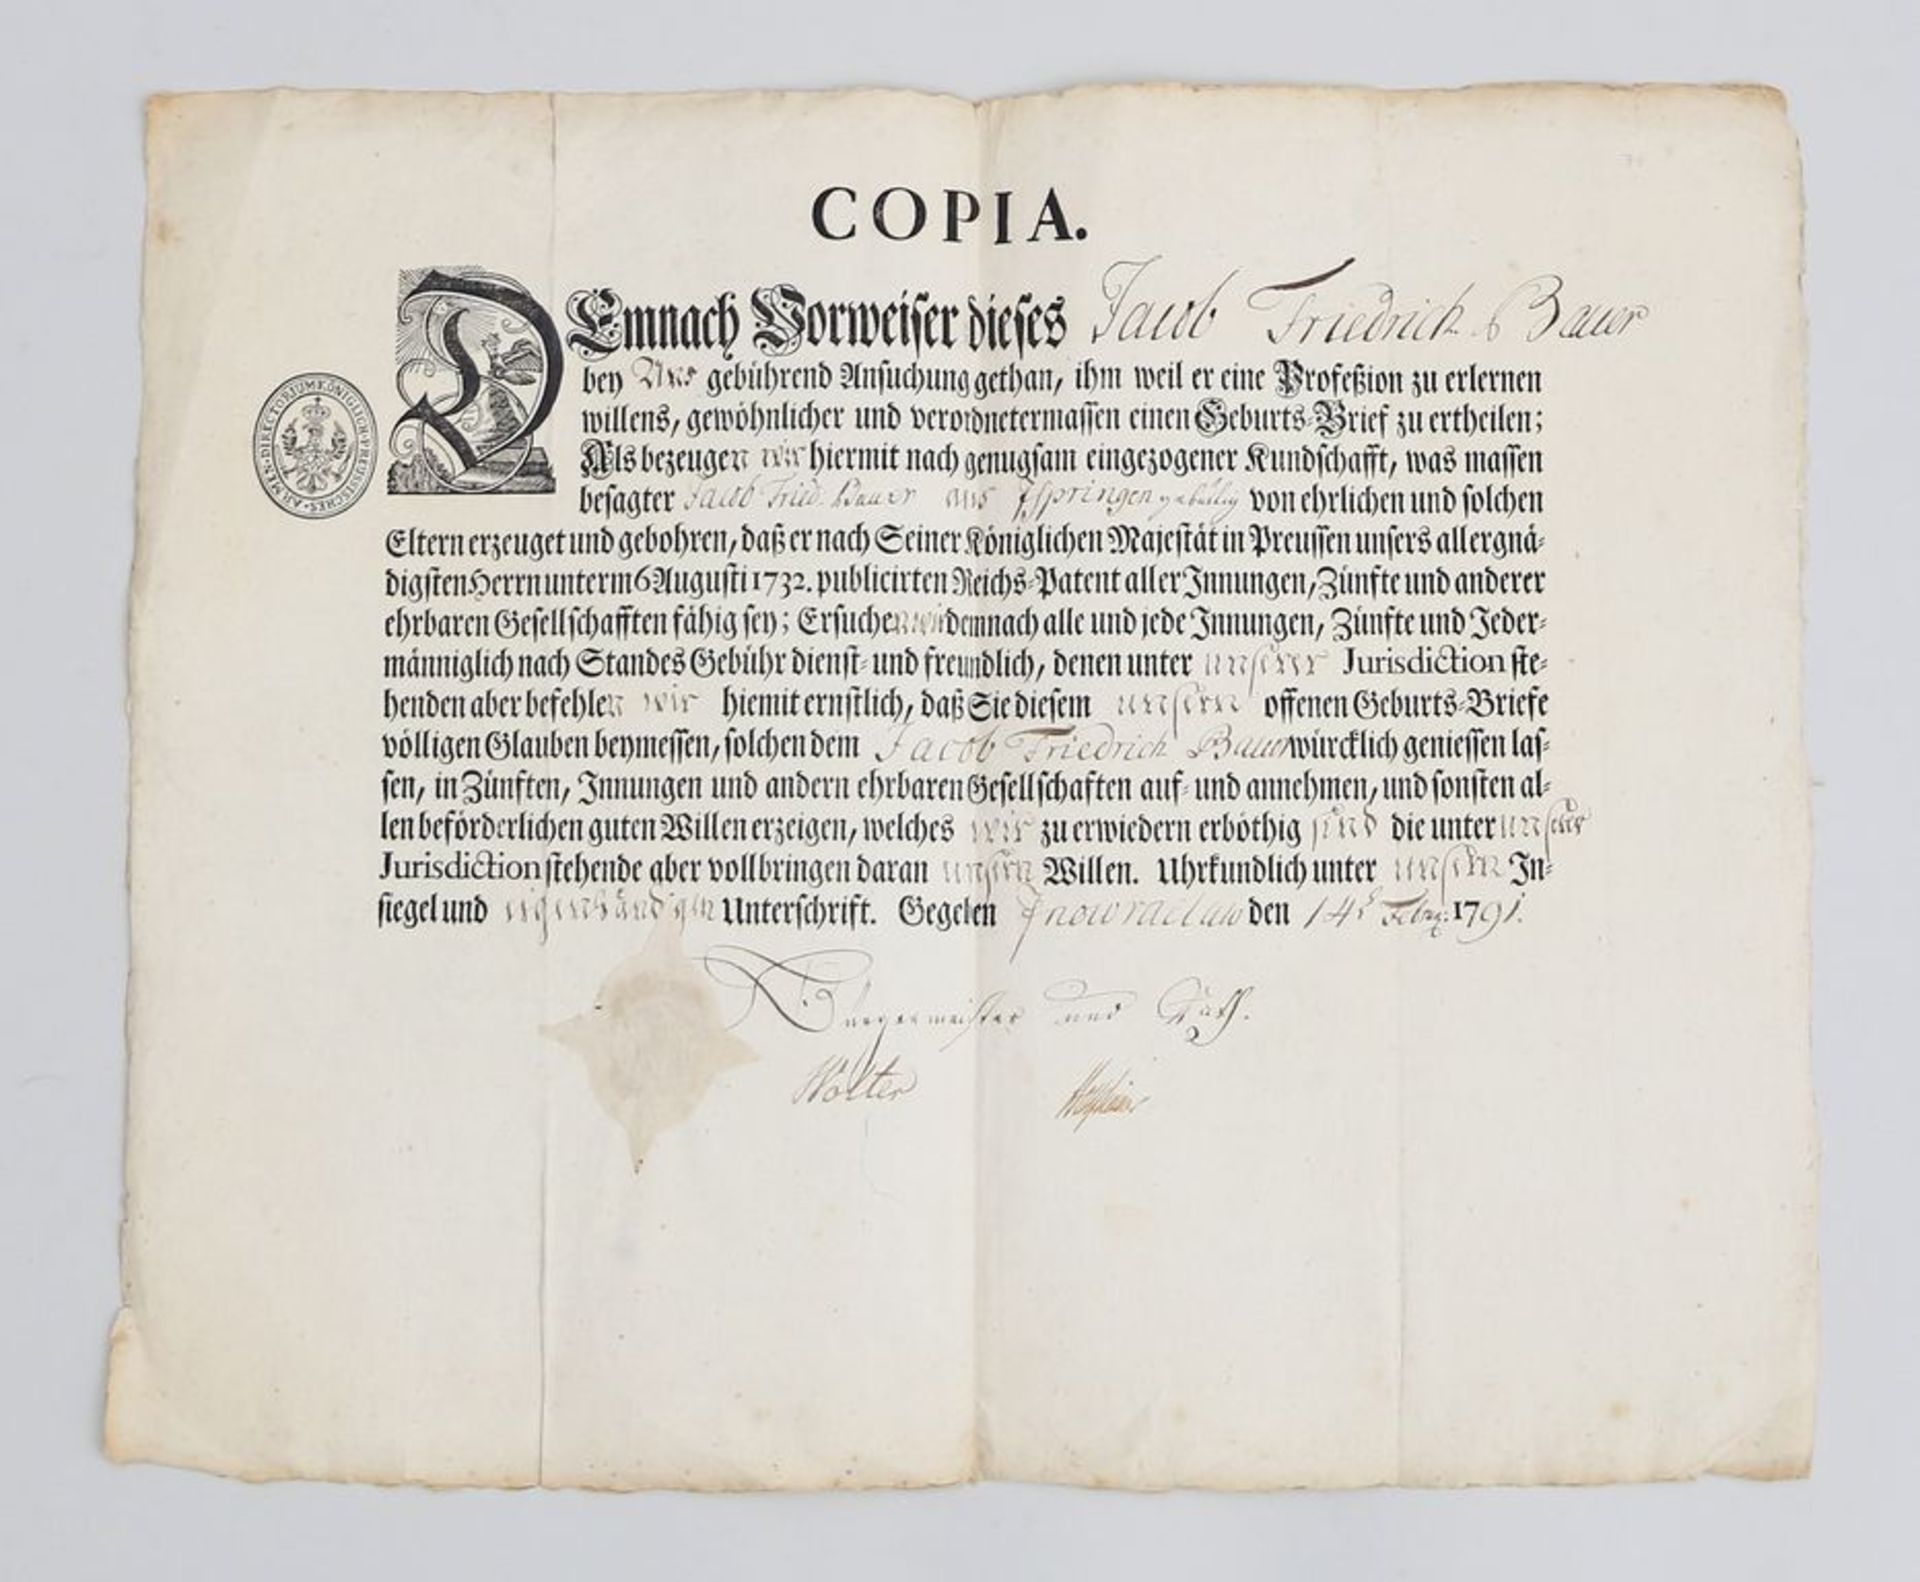 COPIA.
DEmnach Vorweiser dieses Jacob Friedrich Bauer
bey Uns gebührend Ansuchung gethan, ihm weil er eine Profeßion zu erlernen
willens, gewöhnlicher und verordnetermassen einen Geburts-Brief zu ertheilen;
Als bezeugen wir hiermit nach genugsam eingezogener Kundschafft, was massen
besagter Jacob Fried. Bauer aus Ispringen gebürtig von ehrlichen und solchen
Eltern erzeuget und gebohren, daß er nach Seiner Königlichen Majestät in Preussen unsers allergnä-
digsten Herrn unterm 6 Augusti 1732. publicirten Reichs-Patent aller Innungen, Zünfte und anderer
ehrbaren Gesellschafften fähig sey; Ersuchen wir demnach alle und jede Innungen, Zünfte und Jeder-
männiglich nach Standes Gebühr dienst- und freundlich, denen unter unserer Jurisdiction ste-
henden aber befehlen wir hiemit ernstlich, daß Sie diesem unsern offenen Geburts-Briefe
völligen Glauben beymessen, solchen dem Jacob Friedrich Bauer würcklich geniessen las-
sen, in Zünften, Innungen und andern ehrbaren Gesellschaften auf- und annehmen, und sonsten al-
len beförderlichen guten Willen erzeigen, welches wir zu erwiedern erböthig sind die unter unserer
Jurisdiction stehende aber vollbringen daran unsern Willen. Uhrkundlich unter unserm In-
siegel und eigenhändigen Unterschrift. Gegeben Inowraclaw den 14t Febr: 1791.
Bürgermeister und Rath.
Wolter
ARMEN-DIRECTORIUM KÖNIGLICH-PREUSSISCHES